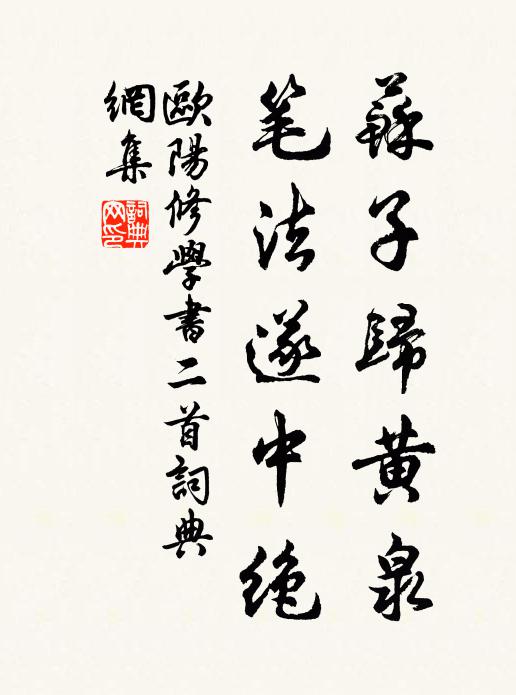 蘇子歸黄泉
笔法遂中絶
歐陽修學書二首詞典
網集
詞典
网印